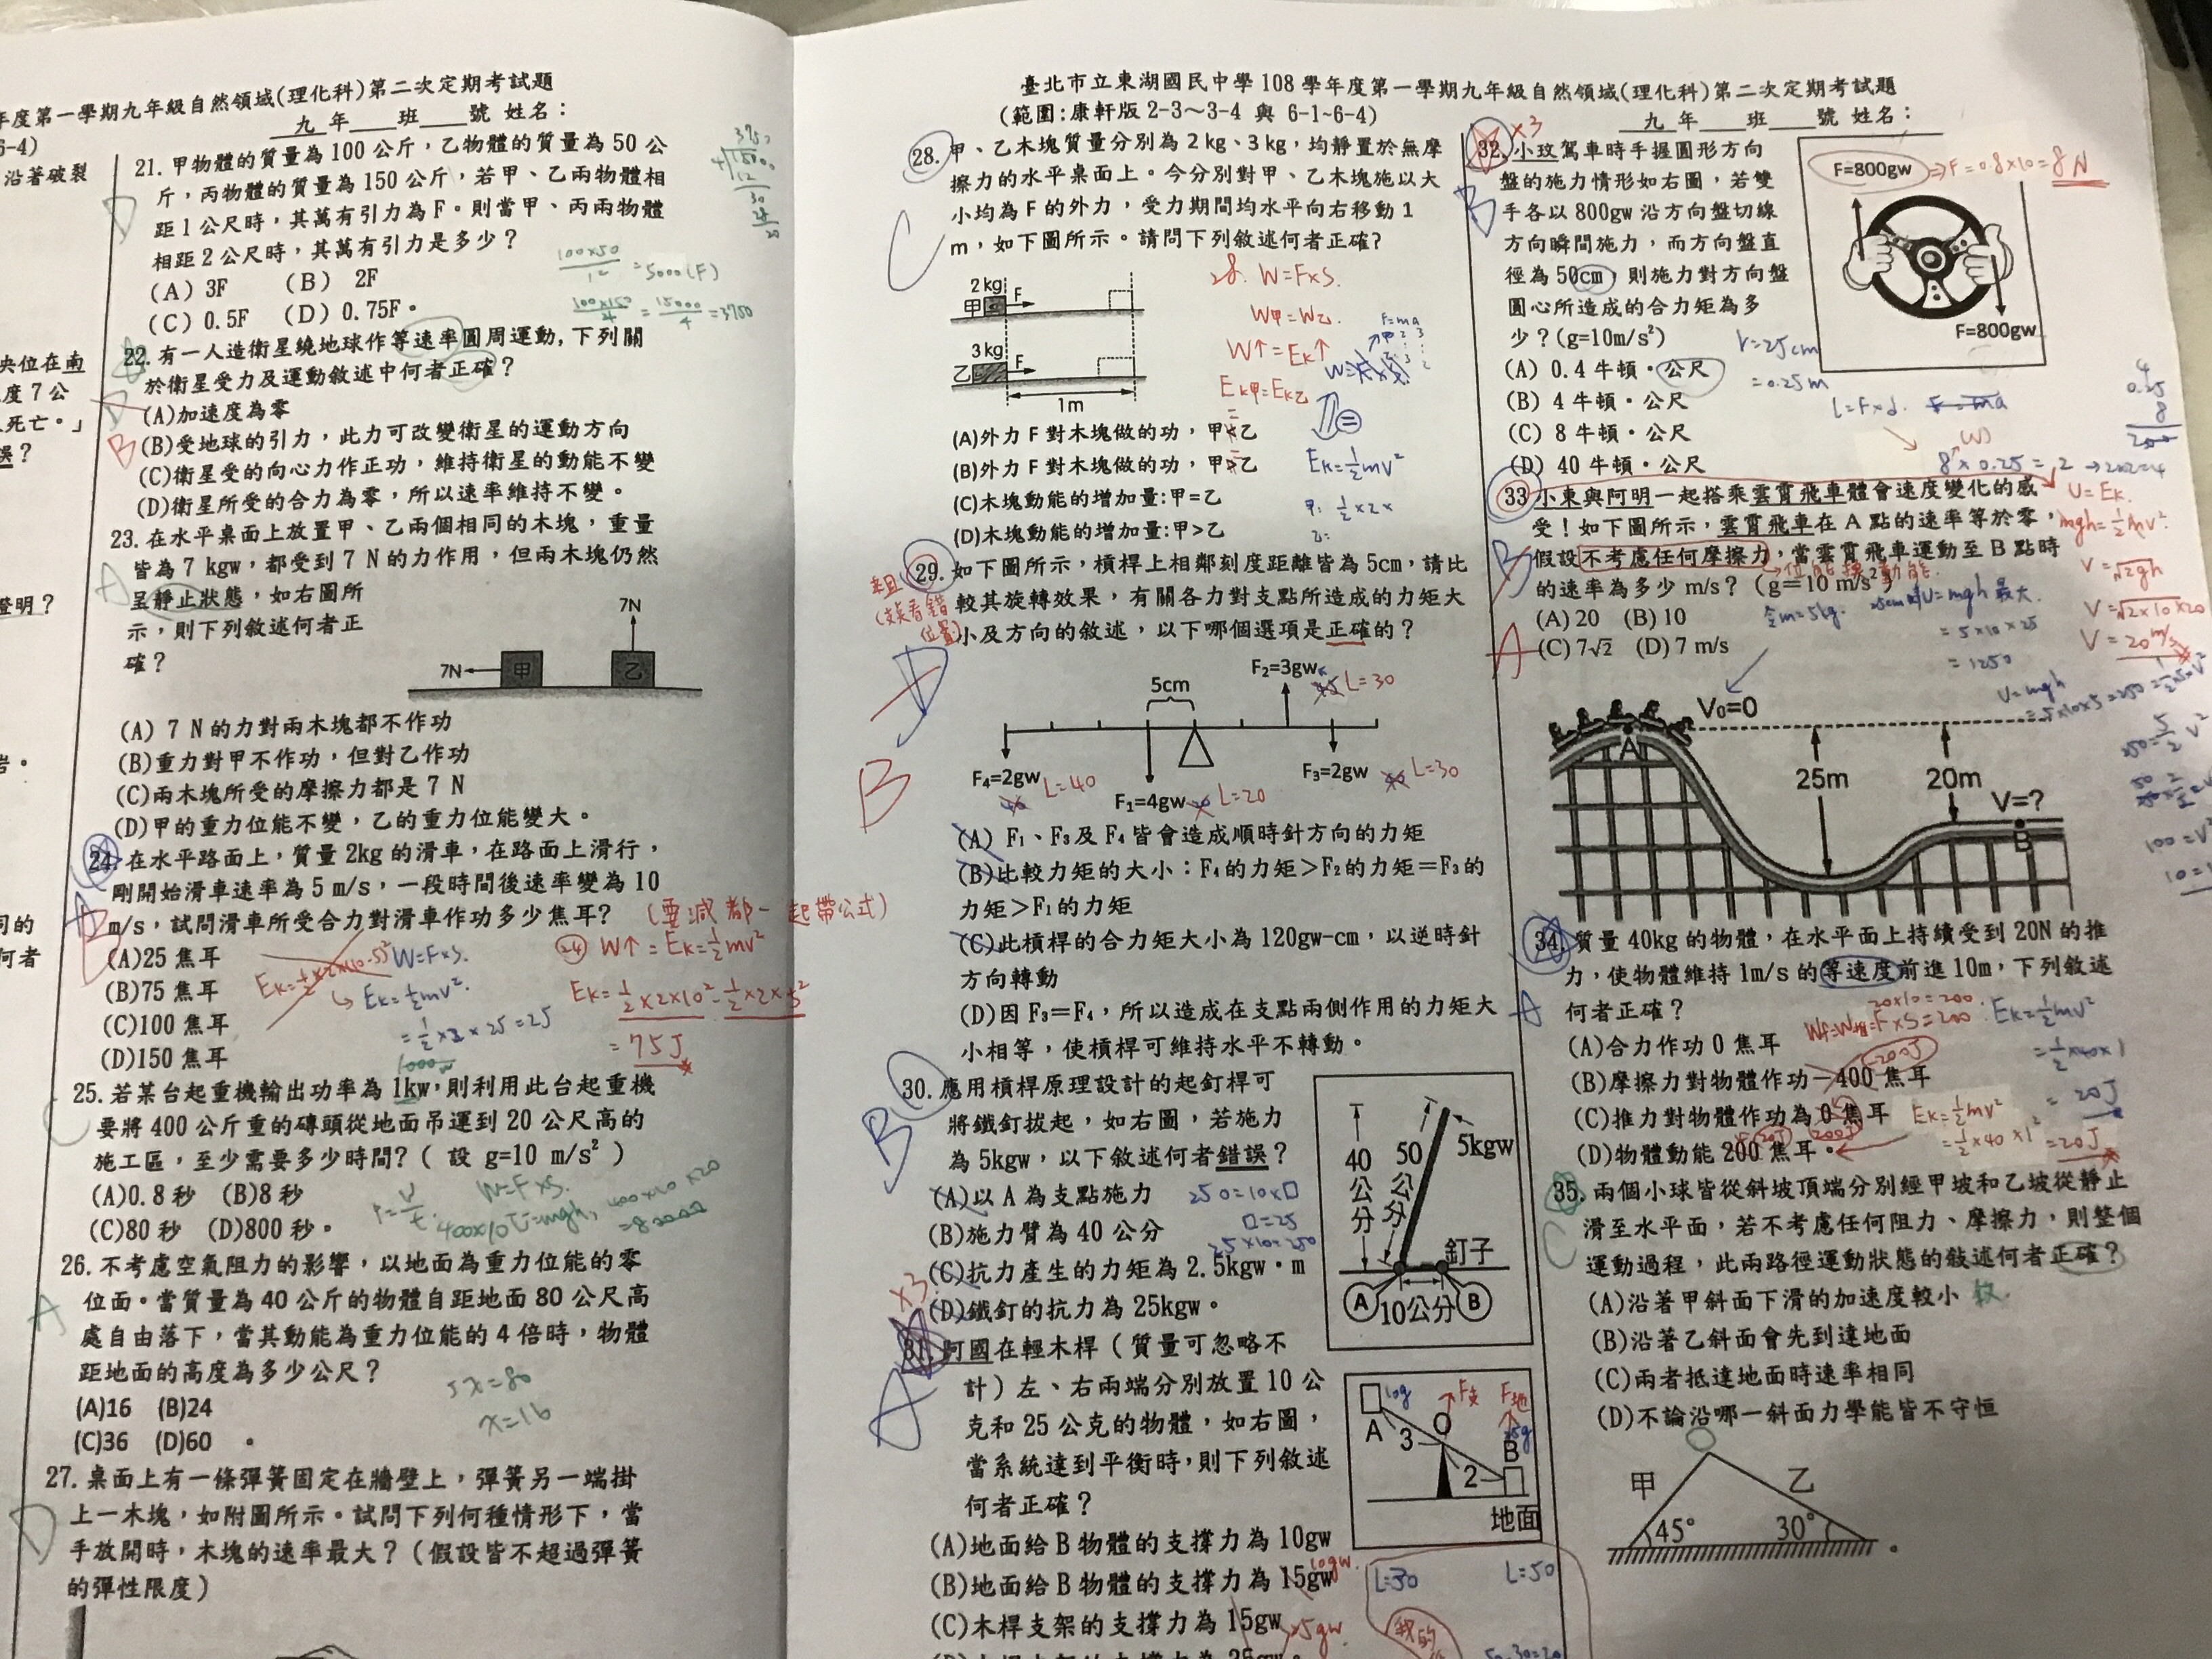 年度第一學期九年級自然領域(理化科)第二次定期考試題
九 年 班 號 姓名：
6-4)
沿著破裂
央位在南
度7公
死亡。」
誤？
證明？
岩。
同的
何者
21. 甲物體的質量為100公斤，乙物體的質量為50公
斤，丙物體的質量為150公斤，若甲、乙兩物體相
距1公尺時，其萬有引力為F。則當甲、丙兩物體
相距2公尺時，其萬有引力是多少？
(A) 3F (B) 2F
(C) 0.5F (D) 0.75F。
D
100×50
1²
=5000(F)
100×150
4
=15000
4
=3750
22. 有一人造衛星繞地球作等速率圓周運動,下列關
於衛星受力及運動敘述中何者正確？
(A)加速度為零
(B)受地球的引力，此力可改變衛星的運動方向
(C)衛星受的向心力作正功，維持衛星的動能不變
(D)衛星所受的合力為零，所以速率維持不變。
B
23. 在水平桌面上放置甲、乙兩個相同的木塊，重量
皆為7 kgw，都受到7 N的力作用，但兩木塊仍然
呈靜止狀態，如右圖所
示，則下列敘述何者正
確？
A
7N
甲
7N
乙
(A) 7 N的力對兩木塊都不作功
(B)重力對甲不作功，但對乙作功
(C)兩木塊所受的摩擦力都是7 N
(D)甲的重力位能不變，乙的重力位能變大。
24. 在水平路面上，質量2kg的滑車，在路面上滑行，
剛開始滑車速率為5 m/s，一段時間後速率變為10
m/s，試問滑車所受合力對滑車作功多少焦耳?
(要減都一起帶公式)
(A)25焦耳
(B)75焦耳
(C)100焦耳
(D)150焦耳
B
W=F×S.
Ek=½mv².
=½×2×25=25
24 W↑=Ek=½mv²
Ek=½×2×10²-½×2×5²
=75J
1000w
25. 若某台起重機輸出功率為1kw，則利用此台起重機
要將400公斤重的磚頭從地面吊運到20公尺高的
施工區，至少需要多少時間?( 設 g=10 m/s² )
(A)0.8秒 (B)8秒
(C)80秒 (D)800秒。
C
W=F×S.
26. 不考慮空氣阻力的影響，以地面為重力位能的零
位面。當質量為40公斤的物體自距地面80公尺高
處自由落下，當其動能為重力位能的4倍時，物體
距地面的高度為多少公尺？
(A)16 (B)24
(C)36 (D)60 。
A
5x=80
x=16
27. 桌面上有一條彈簧固定在牆壁上，彈簧另一端掛
上一木塊，如附圖所示。試問下列何種情形下，當
手放開時，木塊的速率最大？(假設皆不超過彈簧
的彈性限度)
D
臺北市立東湖國民中學108學年度第一學期九年級自然領域(理化科)第二次定期考試題
(範圍:康軒版2-3～3-4 與 6-1~6-4)
九 年 班 號 姓名：
28. 甲、乙木塊質量分別為2kg、3kg，均靜置於無摩
擦力的水平桌面上。今分別對甲、乙木塊施以大
小均為F的外力，受力期間均水平向右移動1
m，如下圖所示。請問下列敘述何者正確?
C
2kg
甲
F
3kg
乙
F
1m
28. W=F×S.
W甲=W乙.
W↑=Ek↑
Ek甲=Ek乙
F=ma
Ek=½mv²
甲:½×2×
乙:
(A)外力F對木塊做的功，甲<乙
(B)外力F對木塊做的功，甲>乙
(C)木塊動能的增加量:甲=乙
(D)木塊動能的增加量:甲>乙
29. 如下圖所示，槓桿上相鄰刻度距離皆為5cm，請比
較其旋轉效果，有關各力對支點所造成的力矩大
小及方向的敘述，以下哪個選項是正確的？
B
5cm
F₂=3gw
L=30
F₄=2gw
L=40
F₁=4gw
L=20
F₃=2gw
L=30
(A) F₁、F₃及F₄皆會造成順時針方向的力矩
(B)比較力矩的大小：F₄的力矩>F₂的力矩=F₃的
力矩>F₁的力矩
(C)此槓桿的合力矩大小為120gw-cm，以逆時針
方向轉動
(D)因F₃=F₄，所以造成在支點兩側作用的力矩大
小相等，使槓桿可維持水平不轉動。
30. 應用槓桿原理設計的起釘桿可
將鐵釘拔起，如右圖，若施力
為5kgw，以下敘述何者錯誤？
(A)以A為支點施力
(B)施力臂為40公分
(C)抗力產生的力矩為2.5kgw·m
(D)鐵釘的抗力為25kgw。
B
250=10×□
□=25
25×10=250
40公分
50公分
5kgw
釘子
A
10公分
B
×3
31. 阿國在輕木桿（質量可忽略不
計）左、右兩端分別放置10公
克和25公克的物體，如右圖，
當系統達到平衡時，則下列敘述
何者正確？
A
10g
F支
F地
25g
A
3
O
2
B
地面
(A)地面給B物體的支撐力為10gw
(B)地面給B物體的支撐力為15gw
10gw.
(C)木桿支架的支撐力為15gw
25gw.
L=30
L=50
×3
32. 小玫駕車時手握圓形方向
盤的施力情形如右圖，若雙
手各以800gw沿方向盤切線
方向瞬間施力，而方向盤直
徑為50cm，則施力對方向盤
圓心所造成的合力矩為多
少？(g=10m/s²)
(A) 0.4牛頓·公尺
(B) 4牛頓·公尺
(C) 8牛頓·公尺
(D) 40牛頓·公尺
B
F=800gw
⇒F=0.8×10=8N
F=800gw
r=25cm
=0.25m
L=F×d.
8×0.25=2→2×2=4
33 小東與阿明一起搭乘雲霄飛車體會速度變化的感
受！如下圖所示，雲霄飛車在A點的速率等於零，
假設不考慮任何摩擦力，當雲霄飛車運動至B點時
的速率為多少m/s？(g=10 m/s²)
(A) 20 (B) 10
(C) 7√2 (D) 7 m/s
A
U=Ek.
mgh=½mv².
V=√2gh
V=√2×10×20
V=20m/s
U=mgh最大.
=5×10×25
=1250
V₀=0
A
25m
20m
V=?
B
34. 質量40kg的物體，在水平面上持續受到20N的推
力，使物體維持1m/s的等速度前進10m，下列敘述
何者正確？
(A)合力作功0焦耳
(B)摩擦力對物體作功-400焦耳
(C)推力對物體作功為0焦耳
(D)物體動能200焦耳。
A
20×10=200
-200J
200J
20J
Ek=½mv²
=½×40×1
=20J
Ek=½mv²
=½×40×1²=20J
35. 兩個小球皆從斜坡頂端分別經甲坡和乙坡從靜止
滑至水平面，若不考慮任何阻力、摩擦力，則整個
運動過程，此兩路徑運動狀態的敘述何者正確？
(A)沿著甲斜面下滑的加速度較小
(B)沿著乙斜面會先到達地面
(C)兩者抵達地面時速率相同
(D)不論沿哪一斜面力學能皆不守恒
C
甲
乙
45°
30°